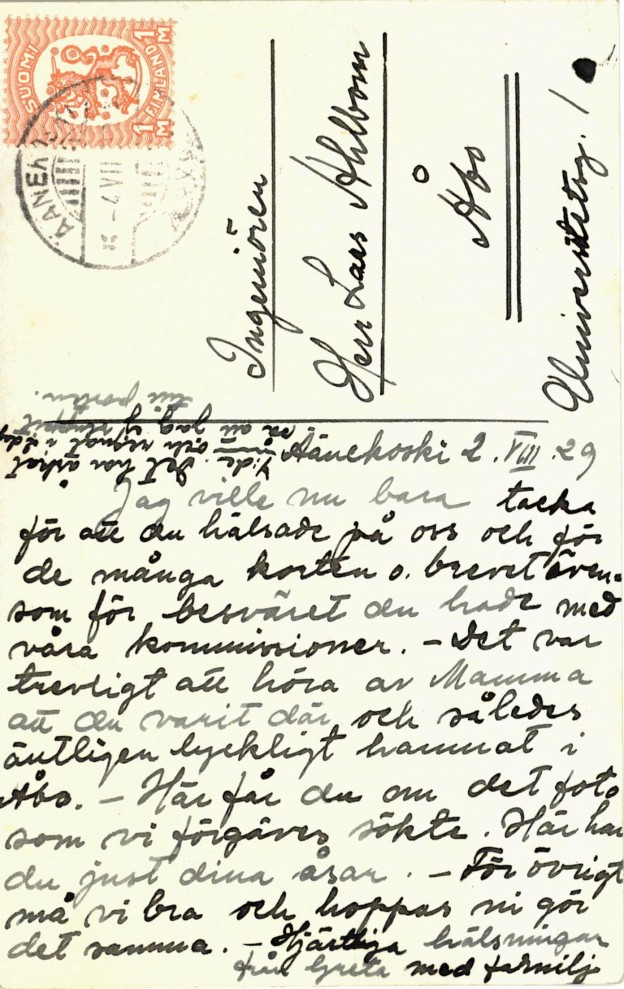 SUOMI
FINLAND
1 M
1 M
ÄÄNEK
4 VIII
Ingeniören
Herr Lars Ahlbom
Åbo
Universitetsg. 1
Äänekoski 2. VIII. 29
Jag ville nu bara tacka
för att du hälsade på oss och för
de många korten o. brevet även-
som för besväret du hade med
våra kommissioner. – Det var
trevligt att höra av Mamma
att du varit där och således
äntligen lyckligt hamnat i
Åbo. – Här får du om det foto
som vi förgäves sökte. Här har
du just dina åsar. – För övrigt
må vi bra och hoppas ni gör
det samma. – Hjärtliga hälsningar
från Greta med familj
Det har åskat
och regnat i dag
så att jag ej
till posten.